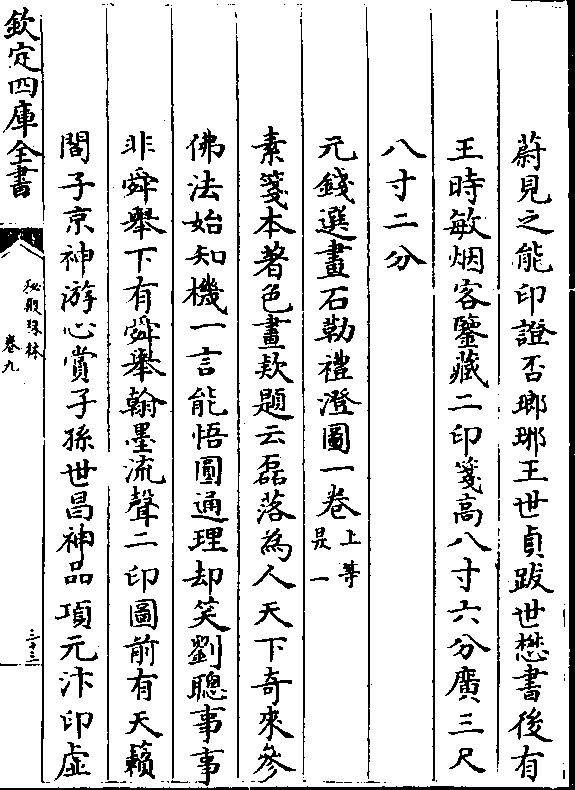 蔚見之能印證否瑯琊王世貞跋世懋書後有
王時敏烟客鑒藏二印箋高八寸六分廣三尺
八寸二分
元錢選畫石勒禮澄圖一卷上等
昃一
素箋本著色畫欵題云磊落為人天下奇來參
佛法始知機一言能悟圓通理却笑劉聰事事
非舜舉下有舜舉翰墨流聲二印圖前有天籟
閣子京神游心賞子孫世昌神品項元汴印虛
欽定四庫全書
秘殿珠林
卷九
三十三